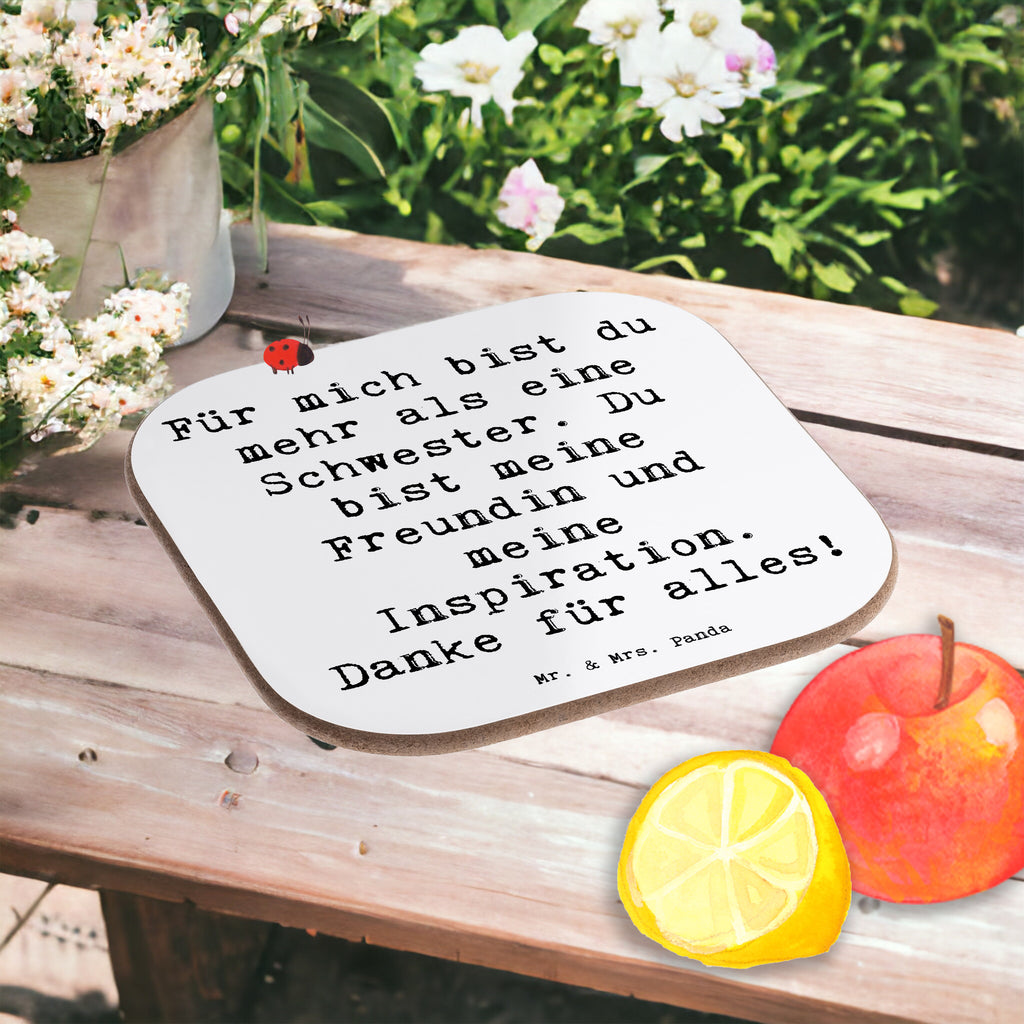 Für mich bist du
mehr als eine
Schwester. Du
bist meine
Freundin und
meine
Inspiration.
Danke für alles!
Mr. & Mrs. Panda